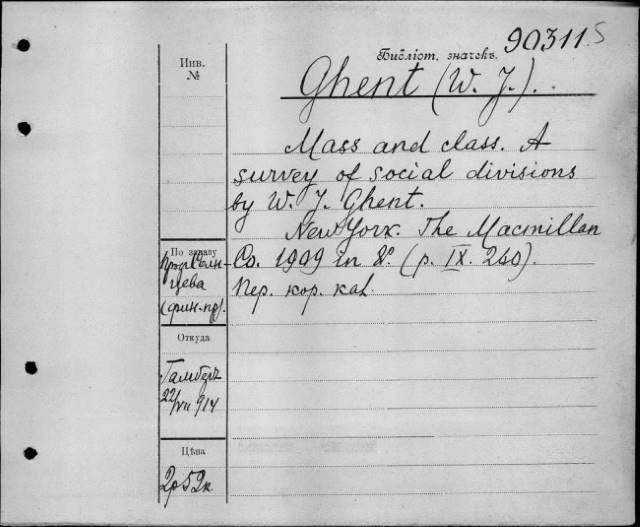 90311 5
Библіот. значекъ.
Инв.
№
Ghent (W. J.).
Mass and class. A
survey of social divisions
by W. J. Ghent.
New York. The Macmillan
Co. 1909 in 8°. (p. IX. 260).
Пер. кор. kal.
По заказу
проф. Солн-
цева
(фин. пр).
Откуда
Гамберъ
22/VII 914
Цѣна
2р 52к